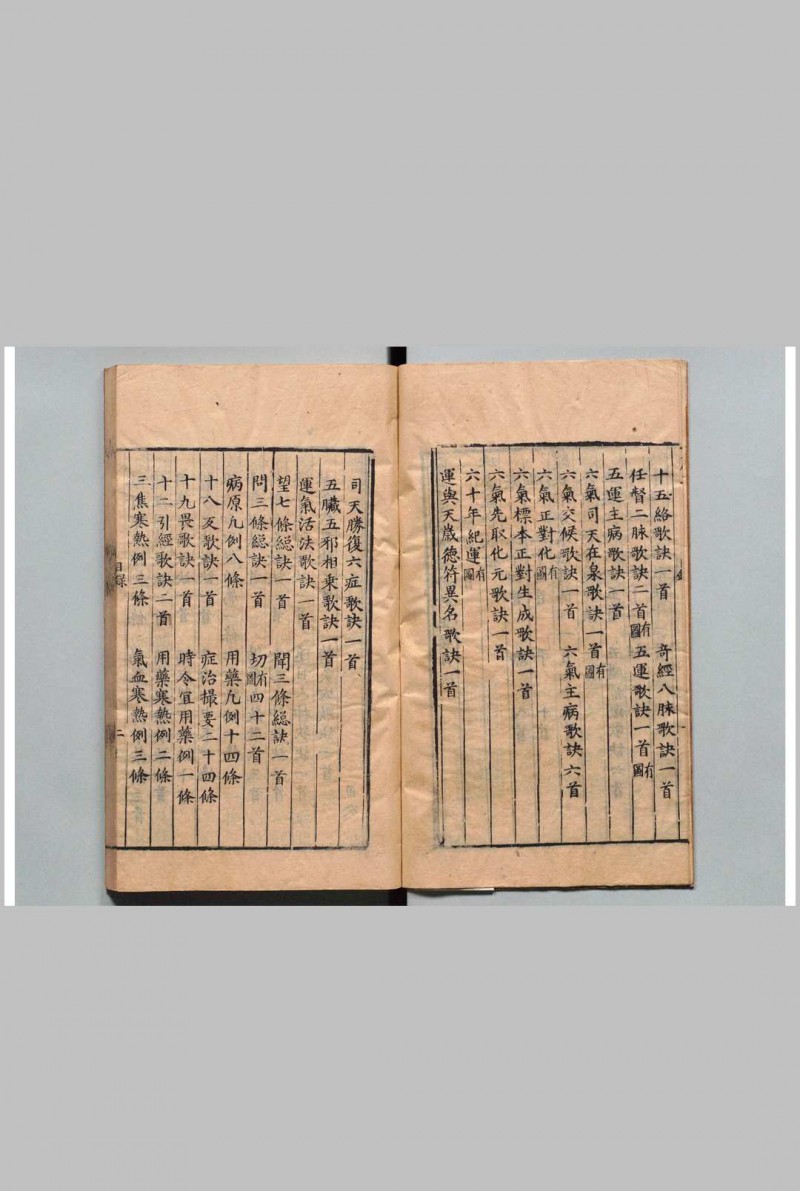 十五絡歌訣一首 奇經八脉歌訣一首
任督二脉歌訣二首有圖 五運歌訣一首有圖
五運主病歌訣一首
六氣司天在泉歌訣一首有圖
六氣交候歌訣一首 六氣主病歌訣六首
六氣正對化有圖
六氣標本正對生成歌訣一首
六氣先取化元歌訣一首
六十年紀運有圖
運與天歲德符異名歌訣一首
司天勝復六症歌訣一首
五臟五邪相乘歌訣一首
運氣活法歌訣一首
望七條總訣一首 聞三條總訣一首
問三條總訣一首 切有圖四十二首
病原九例八條 用藥九例十四條
十八反歌訣一首 症治撮要二十四條
十九畏歌訣一首 時令宜用藥例一條
十二引經歌訣二首 用藥寒熱例二條
三焦寒熱例三條 氣血寒熱例三條
目錄 二